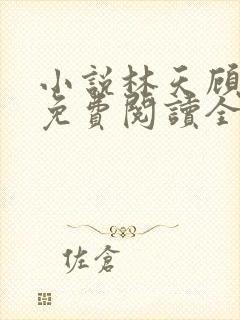 小說林天顧
免費閱讀全
佐倉